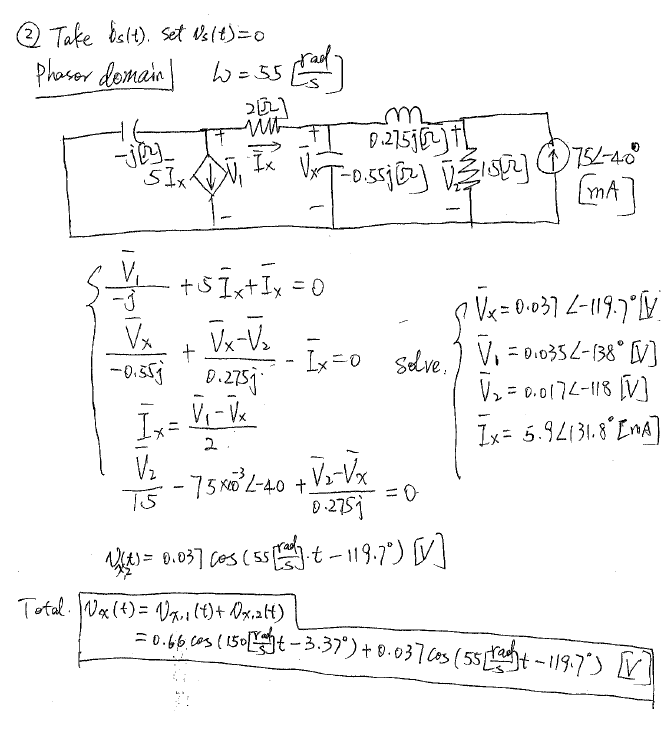 ② Take is(t). set Vs(t)=0
Phasor domain ω = 55 [rad/s]
2[Ω]
-j[Ω]
5Īx
V̄₁
Īx
V̄x
-0.55j[Ω]
0.275j[Ω]
V̄₂
15[Ω]
75∠-40° [mA]
V̄₁/-j + 5Īx + Īx = 0
V̄x/-0.55j + (V̄x-V̄₂)/0.275j - Īx = 0
Īx = (V̄₁-V̄x)/2
V̄₂/15 - 75x10⁻³∠-40 + (V̄₂-V̄x)/0.275j = 0
Solve,
V̄x = 0.037 ∠-119.7° [V]
V̄₁ = 0.035∠-138° [V]
V̄₂ = 0.017∠-118 [V]
Īx = 5.9∠131.8° [mA]
Vx,2(t) = 0.037 cos (55[rad/s]·t - 119.7°) [V]
Total. Vx(t) = Vx,1(t) + Vx,2(t)
= 0.66 cos (150[rad/s]t - 3.37°) + 0.037 cos (55[rad/s]t - 119.7°) [V]